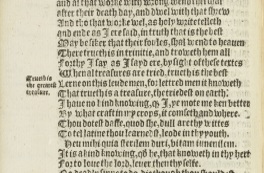 and al that worke with wrong wend ther that
after their death day, and dwel with that shrew
And tho that wo, ke wel, as holy writ telleth
and ende as I ere said, in truth that is the best
May be siker that their soules, shal wend to heauen
There trueth is in trinitie, and troneth hem all
Forthy I say as I sayd ere, by sight of these textes
When al treasures are tried, trueth is the best
Lerne on this lewd men, for lettred men it knoweth
That trueth is a treasure, the triedest on earth
I haue no kind knowing, quod I, ye mote me ken better
By what craft in my corps, it comseth and where.
Thou doted daffe, quod she, dull are thy wittes
To litel latine thou learnedst, leode in thy youth.
Heu mihi quia sterilem duxi, vitam iuuenilem.
It is a kind knowing, quod he, that knoweth in thy hert
For to loue thy lord, leuer then thy selfe.
No deadly sinne to do, die though thou shouldst
Trueth is
the greatest
treasure.